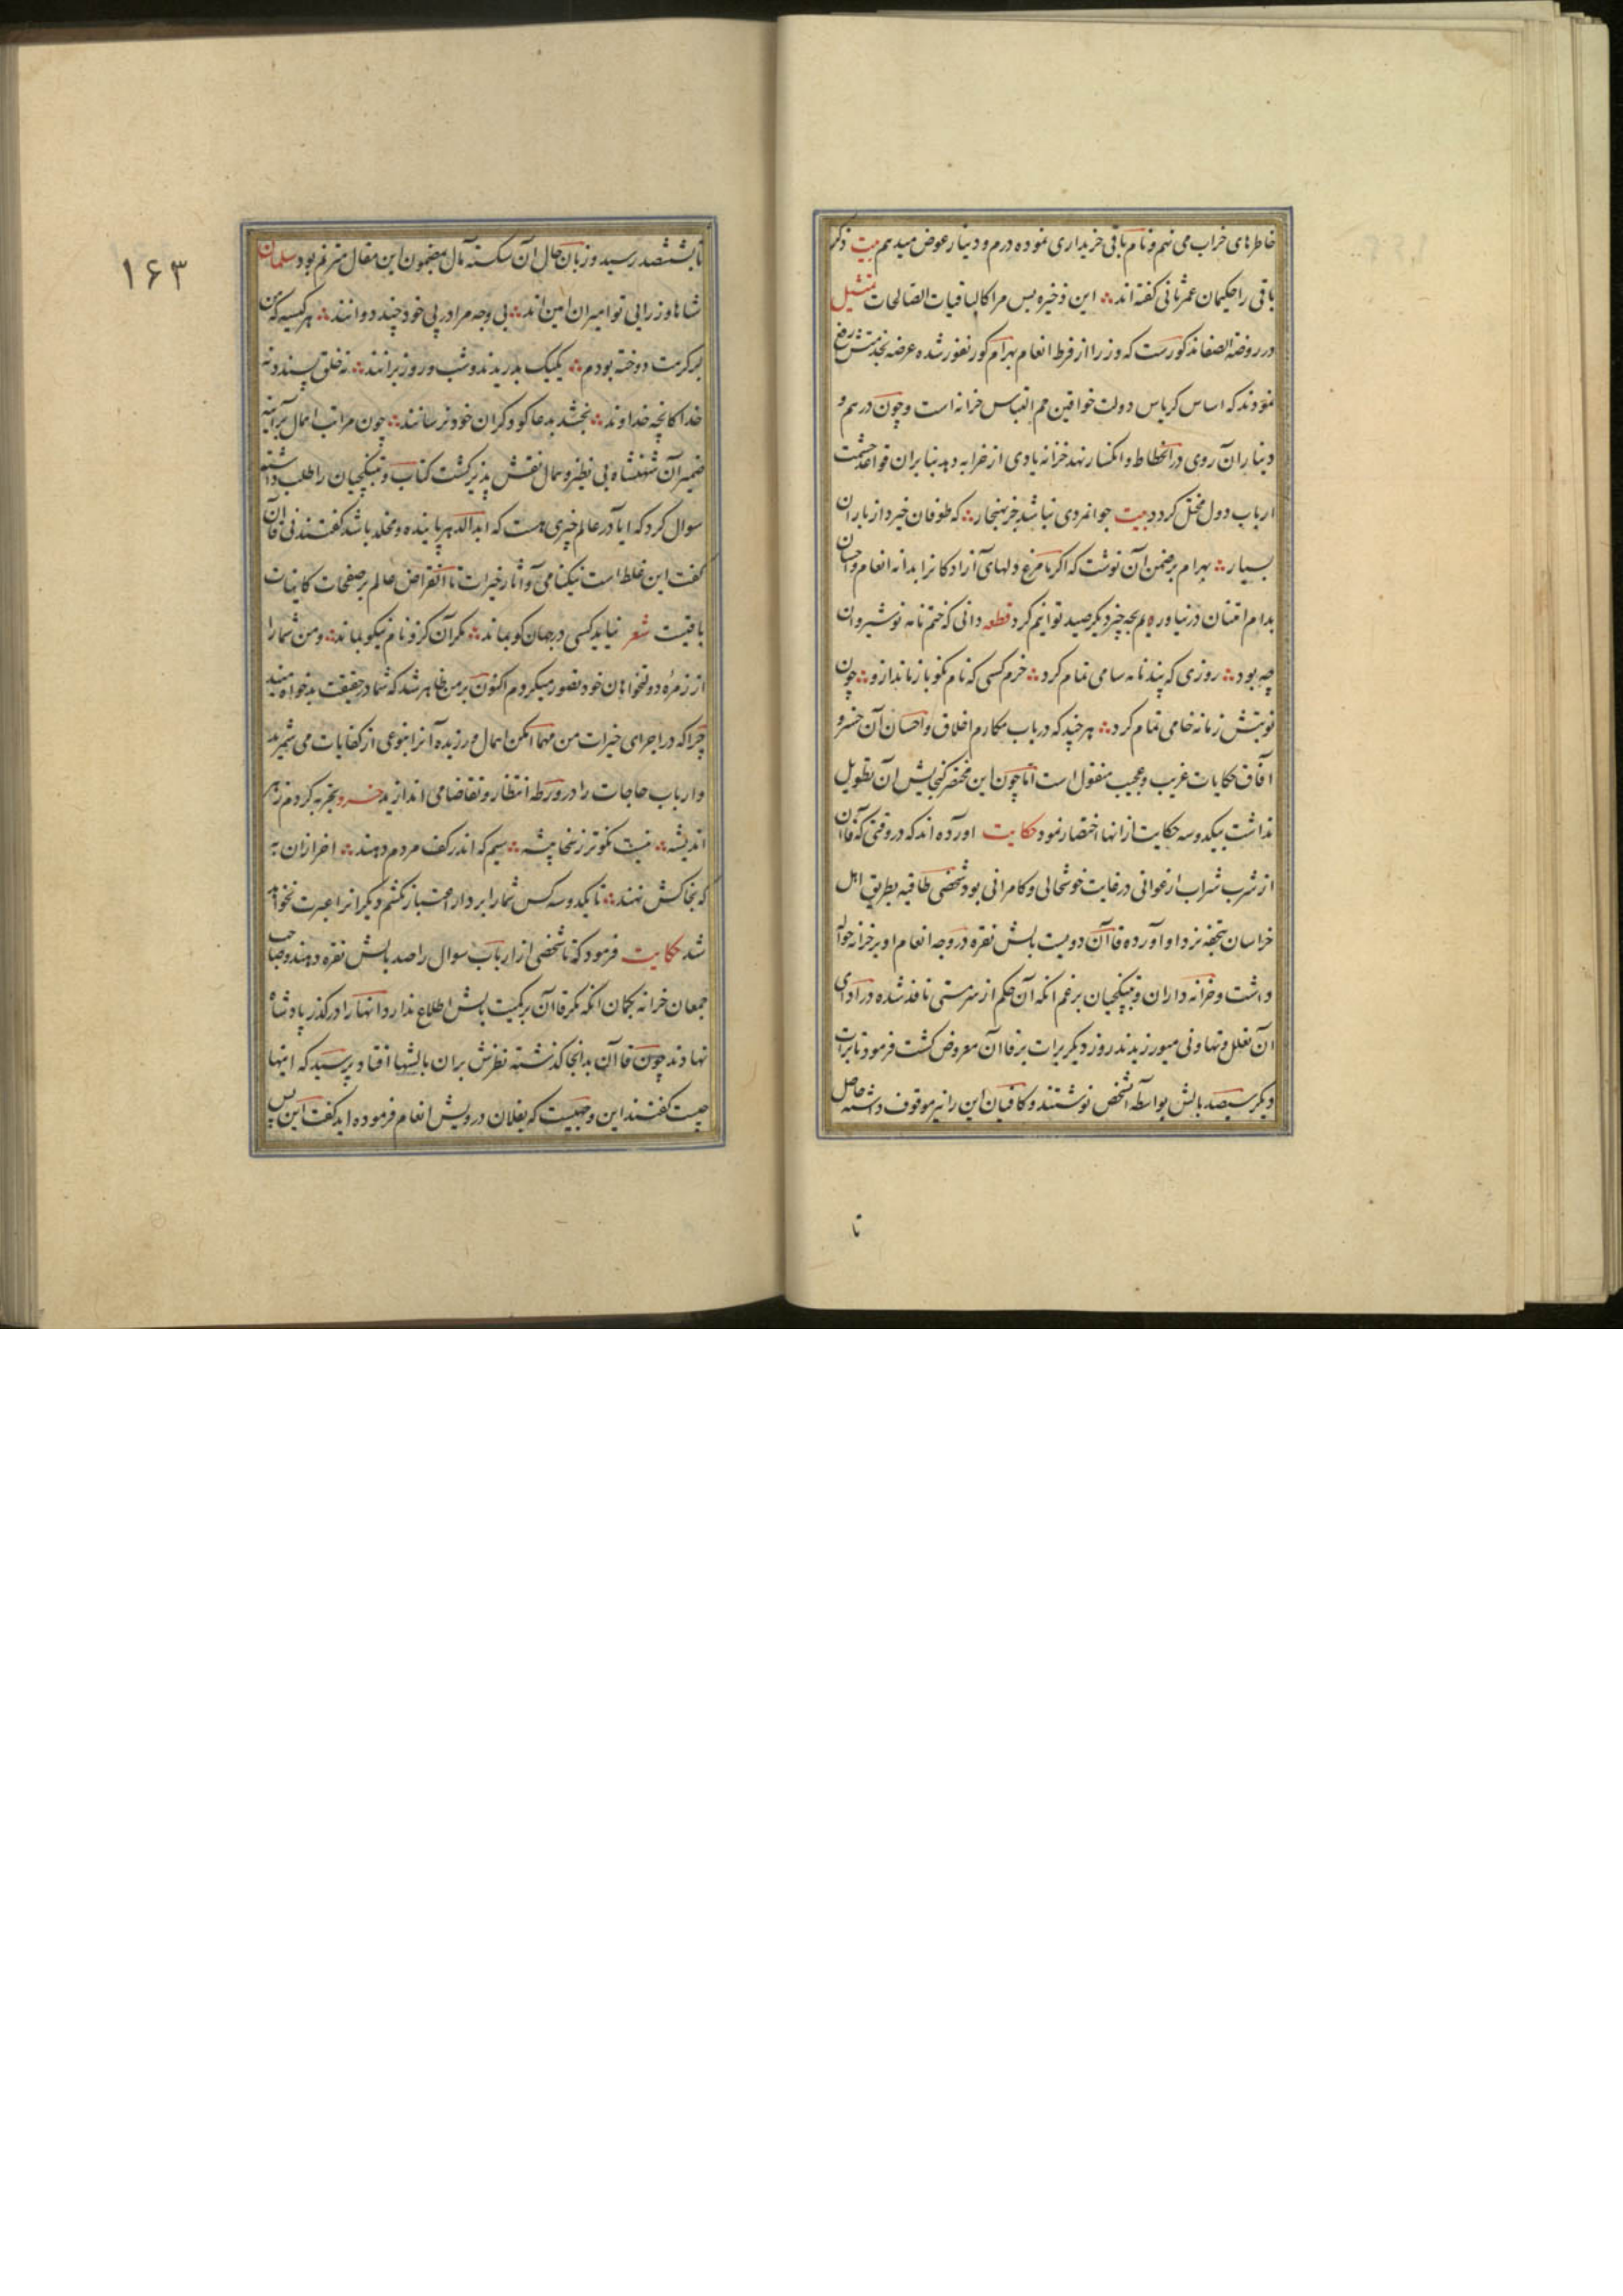 خاطرهای خراب می نهم و نام باقی خریداری نموده درم و دینار عوض میدهم بیت ذکر
باقی را حکیمان عمر ثانی گفته اند این ذخیره بس مرا کالباقیات الصالحات تمثیل
در روضة الصفا مذکورست که وزرا از فرط انعام بهرام گور نفور شده عرضه بخدمتش رفع
نمودند که اساس کریاس دولت خواقین جم التباس خزانه است و چون درهم و
دینار آن روی در انحطاط و انکسار نهد خزانه یادی از خرابه دهد بنابران قواعد حشمت
ارباب دول مختل کردد بیت جوانمردی نباشد جز بهنجار که طوفان خیزد از باران
بسیار بهرام بر ضمن آن نوشت که اکر ما مرغ دلهای آزادکانرا بدانه انعام و احسان
بدام امتنان در نیاوریم بچه چیز دیکر صید توانیم کرد قطعه دانی که ختم نامه نوشیروان
چه بود روزی که پندنامه سامی تمام کرد خرم کسی که نام نکو باز ماند ازو چون
نوبتش زمانه خامی تمام کرد هر چند که در باب مکارم اخلاق و احسان آن خسرو
آفاق حکایات غریب و عجیب منقول است اما چون این مختصر کنجایش آن تطویل
نداشت بیکدو سه حکایت از انها اختصار نمود حکایت اورده اند که در وقتی که قاآن
از شرب شراب ارغوانی در غایت خوشحالی و کامرانی بود شخصی طاقیه بطریق اهل
خراسان بتحفه نزد او آورده قاآن دویست بالش نقره در وجه انعام او بر خزانه حواله
داشت و خزانه داران و بیتکچیان بزعم انکه آن حکم از سر مستی نافذ شده در ادای
آن تعلل و تهاونی میورزیدند روز دیکر برات بر قاآن معروض کشت فرمود تا برات
دیکر سیصد بالش بواسطه آن شخص نوشتند و کافیان این را نیز موقوف داشته حاصل
تا
۱۶۳
تا بششصد رسید و زبان حال آن شکسته بال بمضمون این مقال مترنم بود سلمان
شاها وزرایی تو امیران امین اند بی وجه مرا در پی خود چند دوانند هر کیسه که من
بر کرمت دوخته بودم یکیک بدریدند و شب و روز برانند نه خلق پسندد نه
خدا کانچه خداوند بخشد بدعاکو و کران خود نرسانند چون مراتب اهمال بر آینه
ضمیر آن شهنشاه بی نظیر و همال نقش پذیر کشت کتاب و بیتکچیان را طلب داشته
سوال کرد که ایا در عالم چیزی هست که ابد الدهر پاینده و مخلد باشد کفتند نی قاآن
کفت این غلط است نیکنامی و آثار خیرات تا انقراض عالم بر صفحات کاینات
باقیست شعر نیاید کسی در جهان کو بماند مکر آن کزو نام نیکو بماند و من شما را
از زمره دولتخواهان خود تصور میکردم اکنون بر من ظاهر شد که شما در حقیقت بدخواه منید
چرا که در اجرای خیرات من مهما امکن اهمال ورزیده آنرا نوعی از کفایات می شمرید
و ارباب حاجات را در ورطه انتظار و تقاضا می اندازید خسرو تجربه کردم ز هر
اندیشه نیست نکوتر ز سخا پیشه سیم که اندر کف مردم دهند اخر ازان به
که بخاکش نهند تا یکدو سه کس شما را بر دار اعتبار نکشم دیکرانرا عبرت نخواهد
شد حکایت فرمود که تا شخصی از ارباب سوال را صد بالش نقره دهند و صاحب
جمعان خزانه بکمان انکه مکر قاآن بر کمیت بالش اطلاع ندارد انها را در کذر پادشاه
نهادند چون قاآن بدانجا کذشته نظرش بران بالشها افتاد پرسید که اینها
چیست کفتند این وجهیست که بفلان درویش انعام فرموده اید کفت این بس